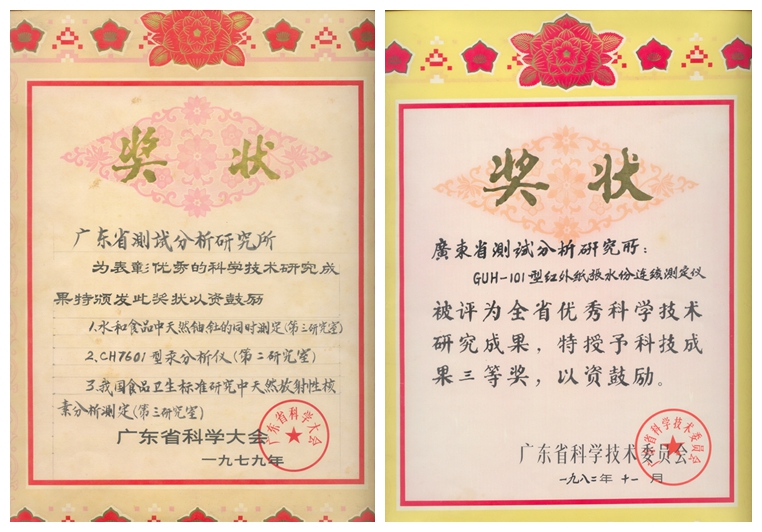 奖状
广东省测试分析研究所
为表彰优秀的科学技术研究成
果特颁发此奖状以资鼓励
1.水和食品中天然铀钍的同时测定(第三研究室)
2.CH7601型汞分析仪(第二研究室)
3.我国食品卫生标准研究中天然放射性核
素分析测定(第三研究室)
广东省科学大会
一九七九年
广东省科学大会
奖状
廣東省测试分析研究所:
GUH-101型红外纸张水份连续测定仪
被评为全省优秀科学技术
研究成果，特授予科技成
果三等奖，以资鼓励。
广东省科学技术委员会
一九八二年十一月
广东省科学技术委员会